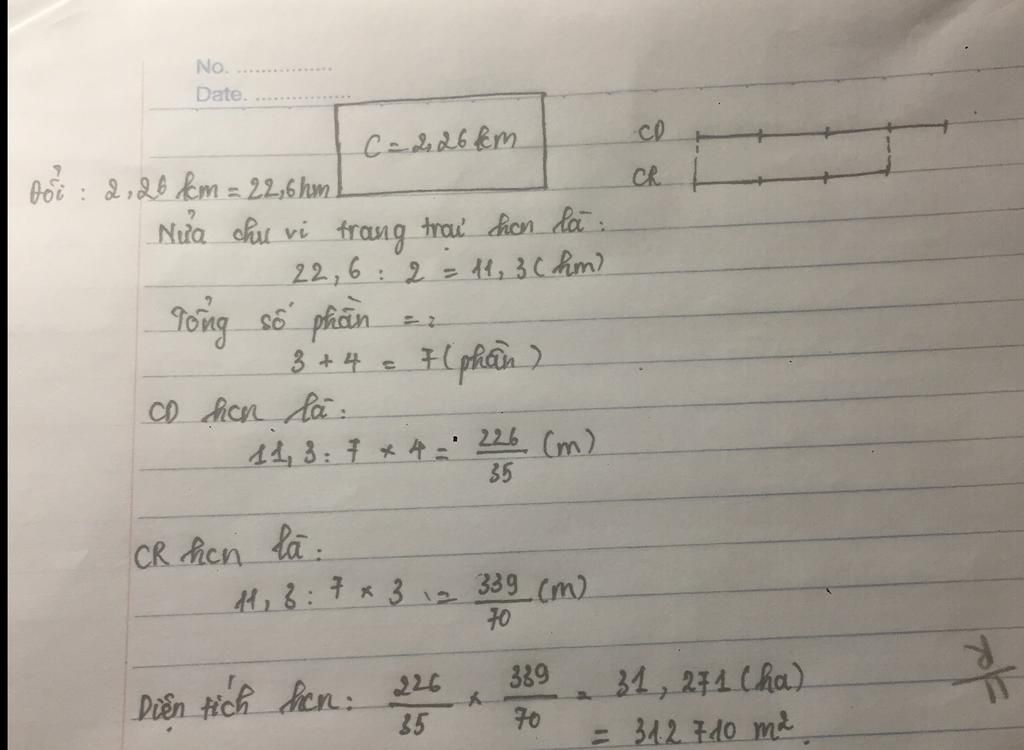 No. ................
Date. ................
C = 2,26 km
CD
CR
Đổi : 2,26 km = 22,6 hm
Nửa chu vi trang trại hcn là :
22,6 : 2 = 11,3 (hm)
Tổng số phần = :
3 + 4 = 7 (phần)
CD hcn là :
11,3 : 7 × 4 = 226/35 (m)
CR hcn là :
11,3 : 7 × 3 = 339/70 (m)
Diện tích hcn : 226/35 × 339/70 = 31,271 (ha)
= 312710 m².